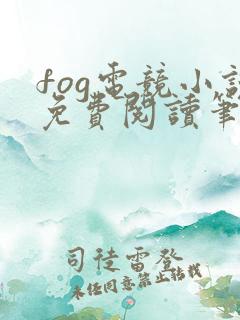 fog電競小說
免費閱讀筆
司徒雷登
未經同意禁止轉載